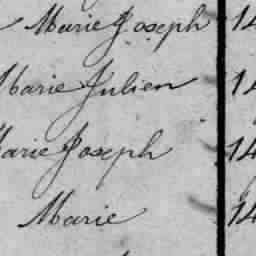 Marie Joseph 14
Marie Julien 14
Marie Joseph 14
Marie 14